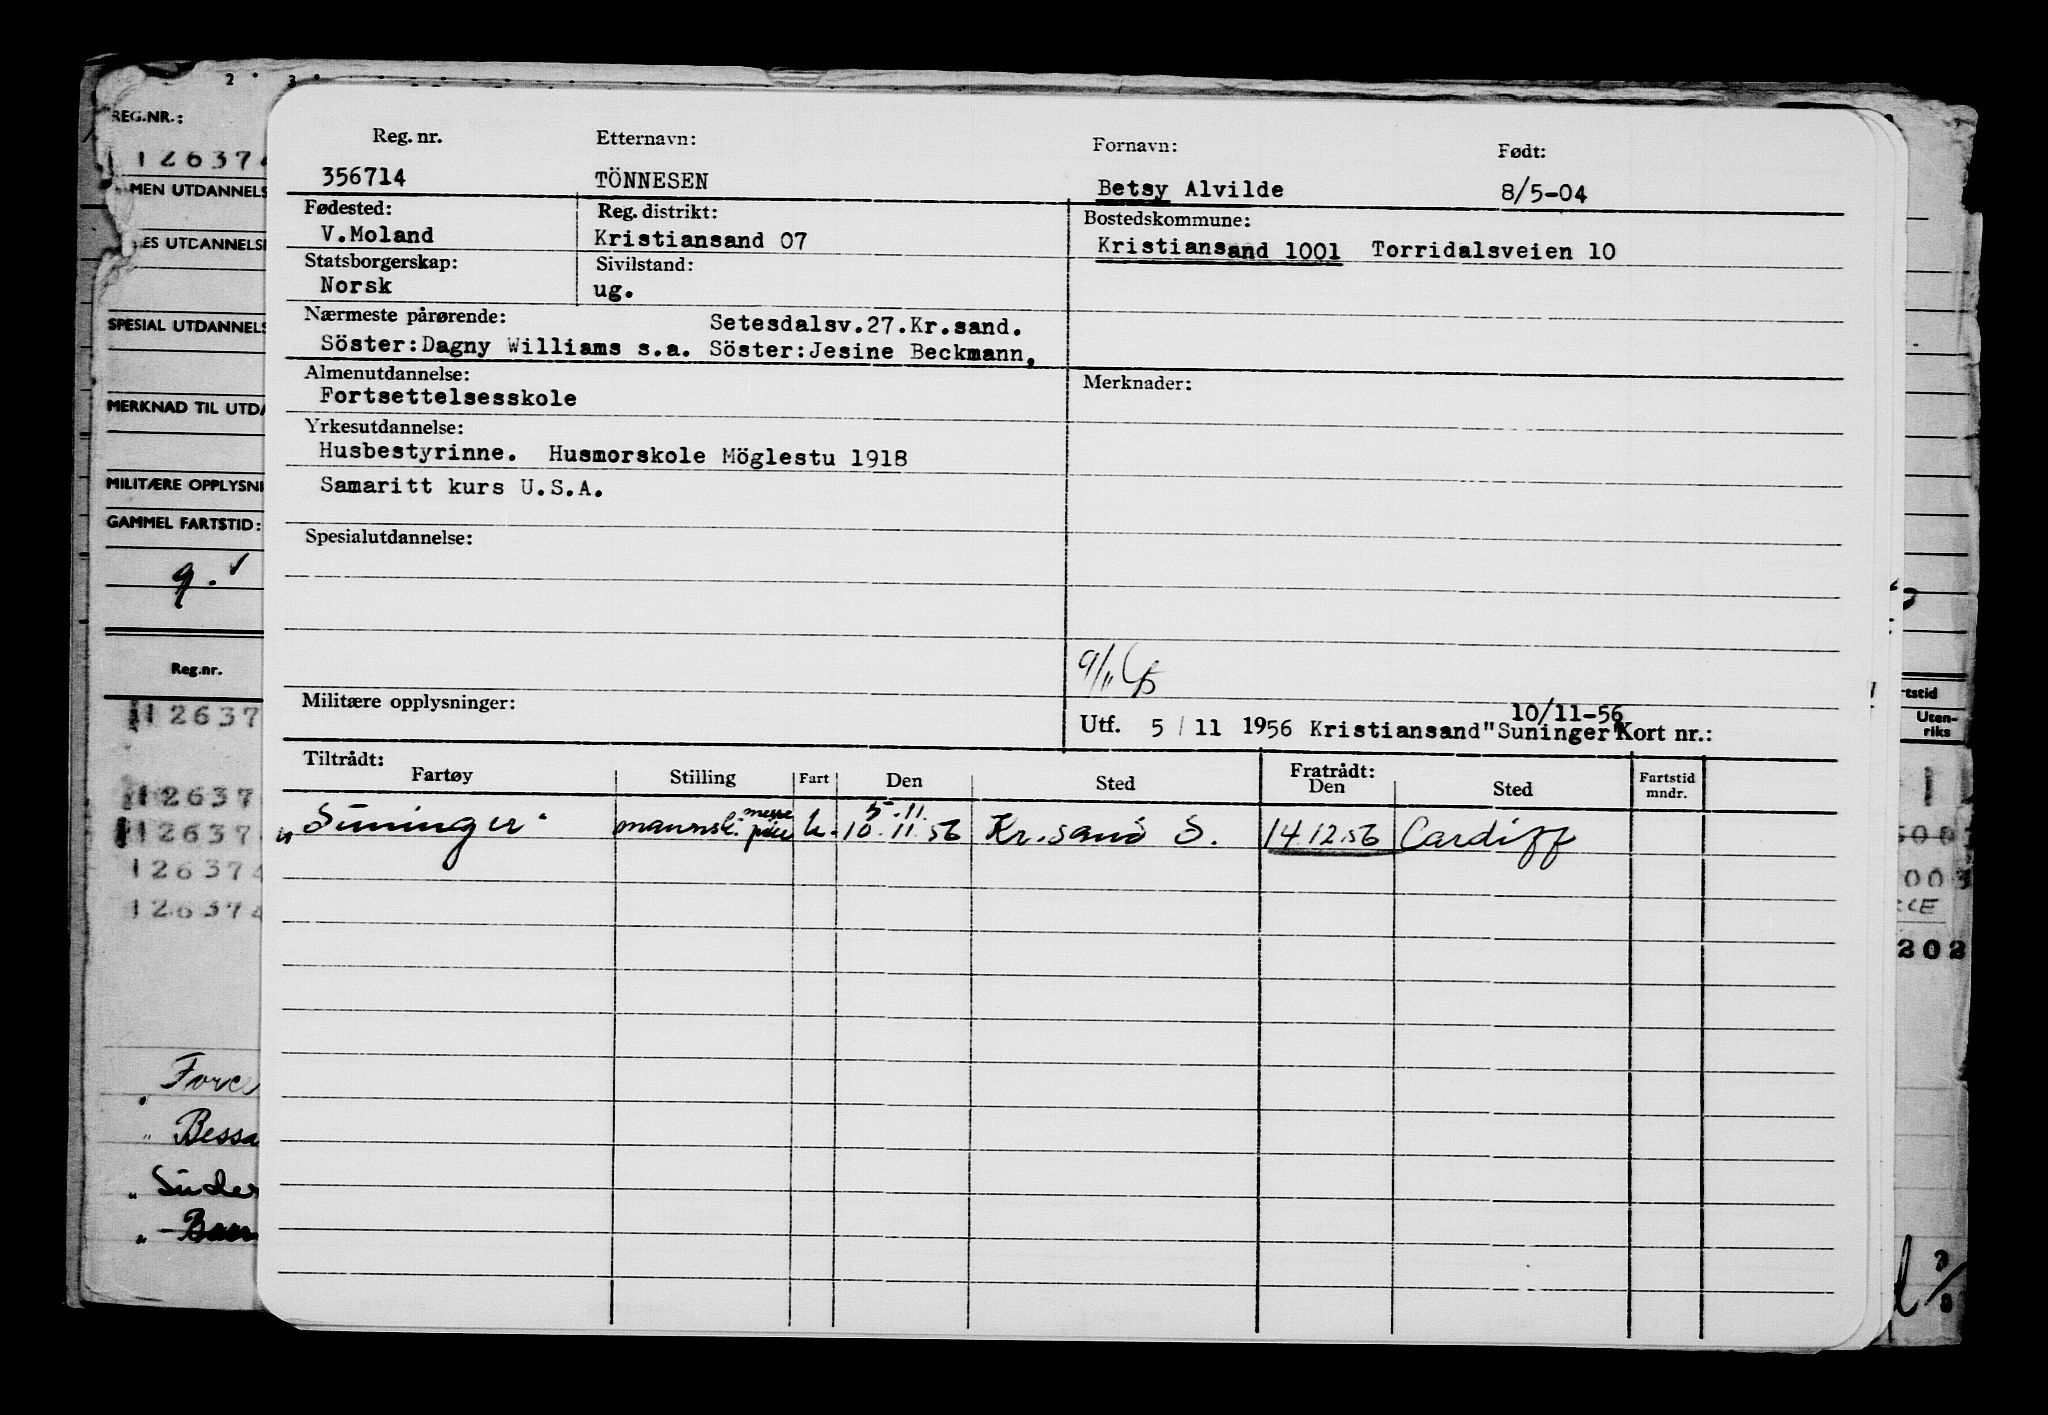 2 3
REG.NR.:
126374
MEN UTDANNELS
ES UTDANNELSE
SPECIAL UTDANNELS
MERKNAD TIL UTDA
MILITÆRE OPPLYSNI
GAMMEL FARTSTID:
9.
Reg.nr.
12637
12637
12637
126374
126374
Bessa
Süder
Reg. nr. Etternavn: Fornavn: Født:
356714 TÖNNESEN Betsy Alvilde 8/5-04
Fødested: Reg. distrikt: Bostedskommune:
V.Moland Kristiansand 07 Kristiansand 1001 Torridalsveien 10
Statsborgerskap: Sivilstand:
Norsk ug.
Nærmeste pårørende: Setesdalsv.27.Kr.sand.
Söster:Dagny Williams s.a. Söster:Jesine Beckmann,
Almenutdannelse: Merknader:
Fortsettelsesskole
Yrkesutdannelse:
Husbestyrinne. Husmorskole Möglestu 1918
Samaritt kurs U.S.A.
Spesialutdannelse:
9/11
Militære opplysninger:
10/11-56
Utf. 5 / 11 1956 Kristiansand "Suninger" Kort nr.:
Tiltrådt: Fratrådt:
Fartøy Stilling Fart Den Sted Den Sted Fartstid mndr.
messe 5.11.
" Suninger" pike u. 10.11.56 Kr.sand S. 14.12.56 Cardiff
rtstid
Uten-
riks
1
003
202